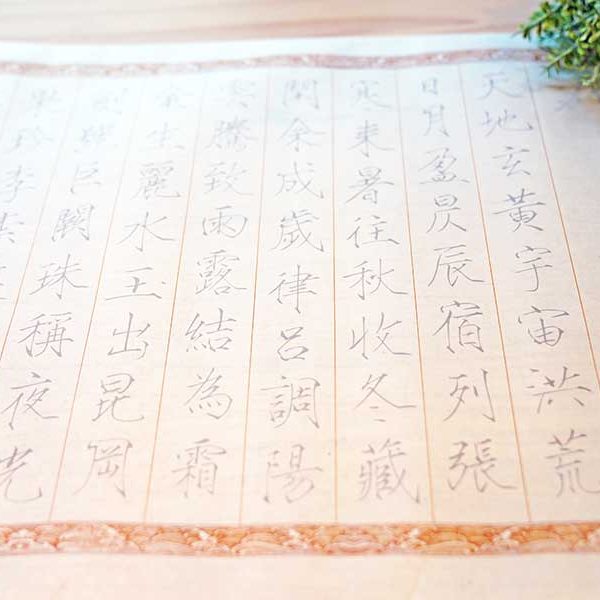 天地玄黃宇宙洪荒
日月盈昃辰宿列張
寒来暑往秋收冬藏
閏余成歲律呂調陽
雲騰致雨露結為霜
金生麗水玉出昆岡
劍號巨闕珠稱夜光
果珍李柰